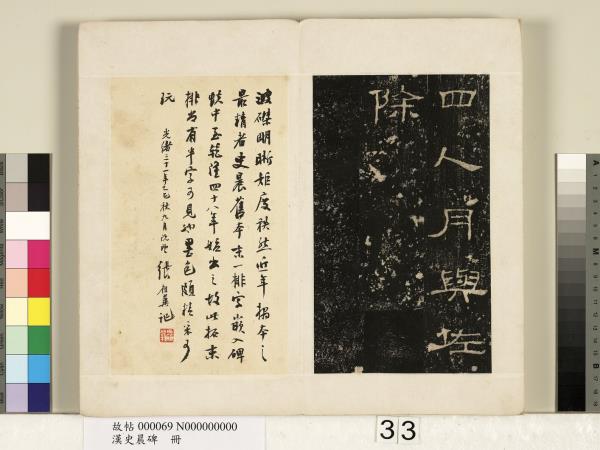 四人月與佐
除
波磔明晰矩度秩然近年搨本之
最精者史晨舊本末一排字嵌入碑
趺中至乾隆四十八年始出之故此拓末
排尚有半字可見墨色頗精采可
玩
光緒三十一年乙巳秋九月
張祖翼記
故帖 000069 N000000000
漢史晨碑 冊
33